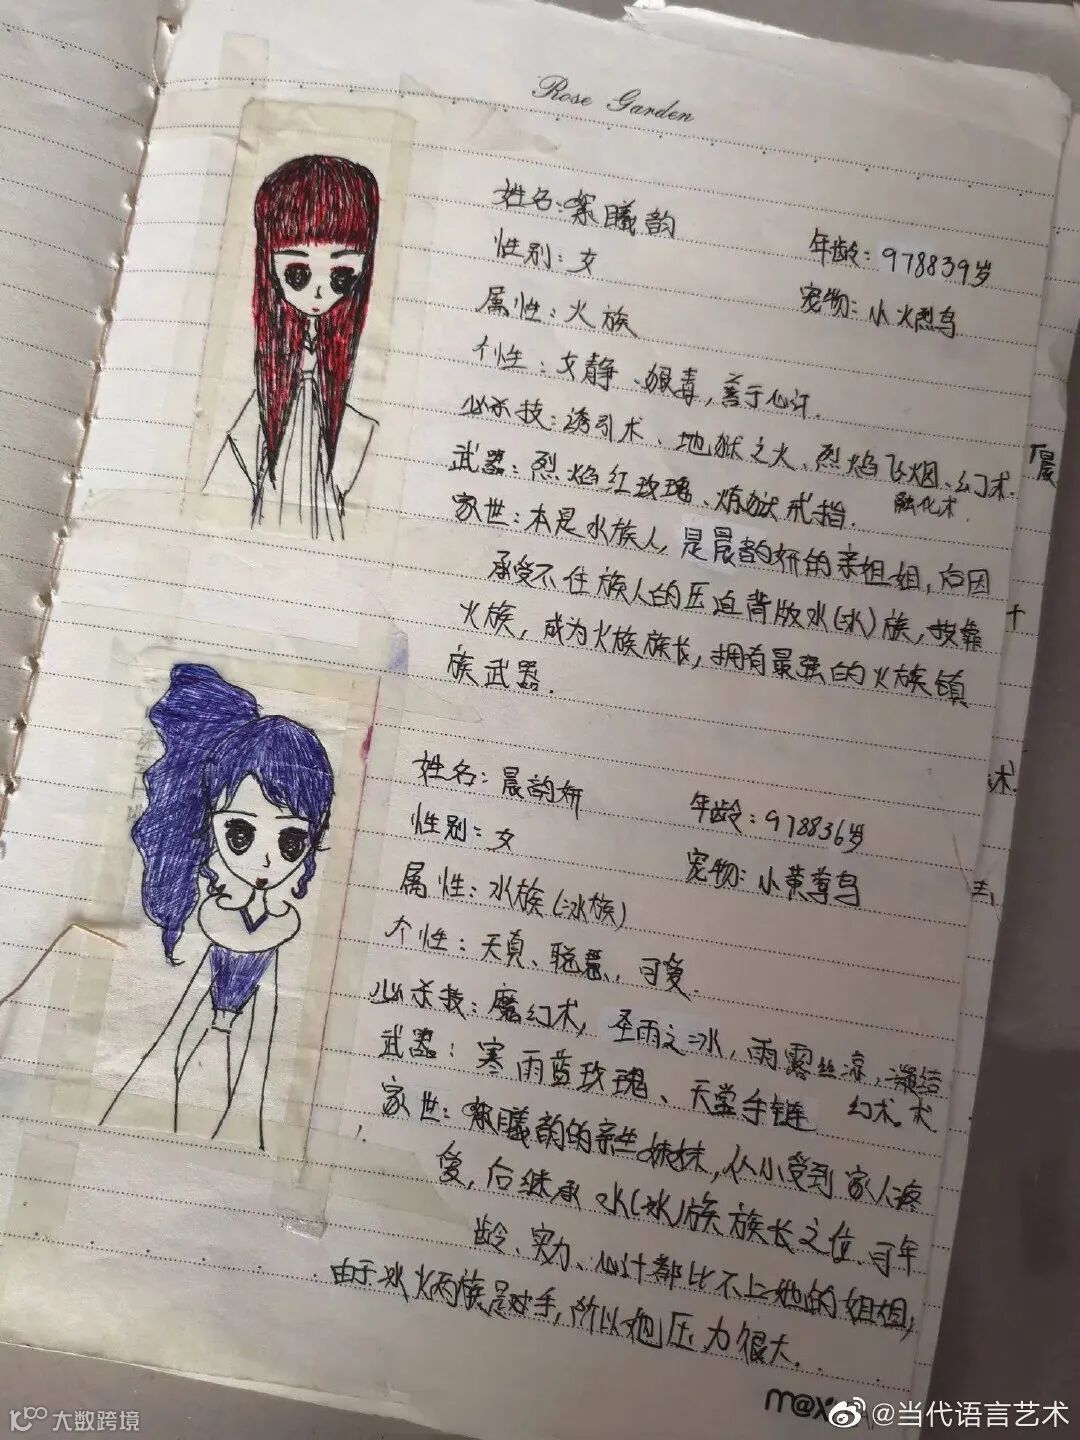 Rose Garden
姓名：曦韵
性别：女 年龄：978839岁
属性：火族 宠物：小火烈鸟
个性：文静、狠毒，善于心计.
必杀技：诱引术、地狱之火、烈焰飞烟、幻术.
融化术.
武器：烈焰红玫瑰、炼狱戒指.
家世：本是水族人，是晨韵妍的亲姐姐，后因
承受不住族人的压迫背版水(冰)族，投靠
火族，成为火族族长，拥有最强的火族镇
族武器.
姓名：晨韵妍
性别：女 年龄：978836岁
属性：水族(冰族) 宠物：小黄莺鸟
个性：天真、聪慧，可爱.
必杀技：魔幻术，圣雨之冰，雨露丝凉，凝结
幻术.术
武器：寒雨蓝玫瑰、天堂手链
家世：曦韵的亲生妹妹，从小受到家人疼
爱，后继承水(冰)族族长之位、可年
龄、实力、心计都比不上她的姐姐，
由于冰火两族是对手，所以她压力很大.
m@x
@当代语言艺术
大数跨境